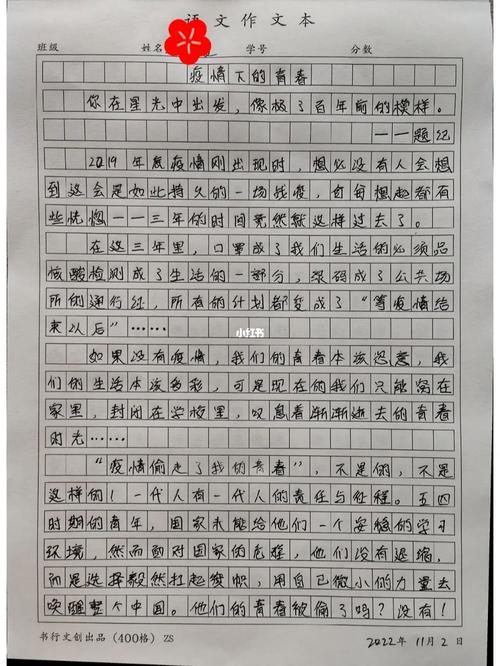 语文作文本
班级 姓名 学号 分数
疫情下的青春
你在星光中出发，像极了百年前的模样。
——题纪
2019年底疫情刚出现时，想必没有人会想
到这会是如此持久的一场战疫，自每想起都有
些恍惚——三年的时间竟然就这样过去了。
在这三年里，口罩成了我们生活的必须品
核酸检测成了生活的一部分，绿码成了公共场
所的通行红，所有的计划都变成了“等疫情结
束以后”……
如果没有疫情，我们的青春本该恣意，我
们的生活本该多彩，可是现在的我们只能窝在
家里，封闭在学校里，叹息着渐渐逝去的青春
时光……
“疫情偷走了我的青春”，不是的，不是
这样的！一代人有一代人的责任与征程。五四
时期的青年，国家未能给他们一个妥稳的学习
环境，然而面对国家的危难，他们没有退缩，
而是选择毅然扛起疫帜，用自己微小的力量去
唤醒整个中国。他们的青春被偷了吗？没有！
小红书
书行文创出品（400格）ZS
2022年11月2日